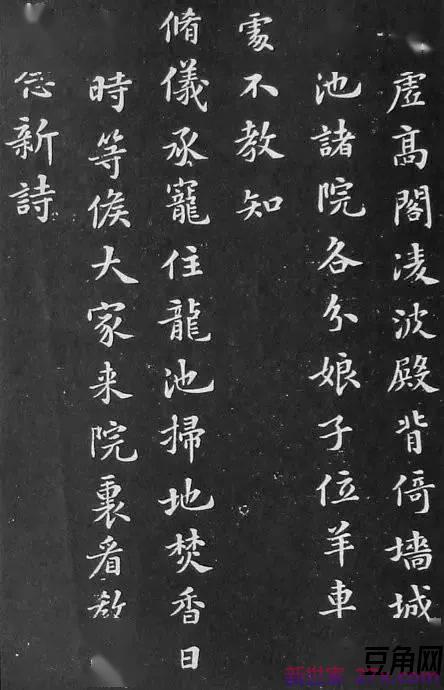 虛高閣凌波殿背倚墻城
池諸院各分娘子位羊車
處不教知
脩儀承寵住龍池掃地焚香日
時等候大家来院裏看教
念新詩
豆角网